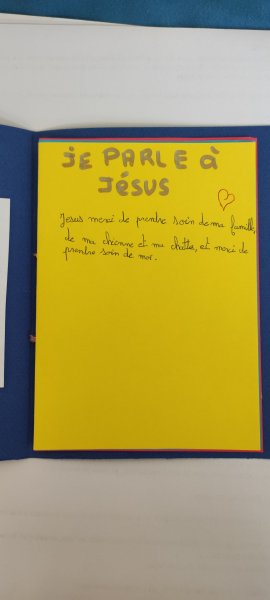 JE PARLE à
JÉSUS
Jesus merci de prendre soin de ma famille,
de ma chienne et ma chatte, et merci de
prendre soin de moi.